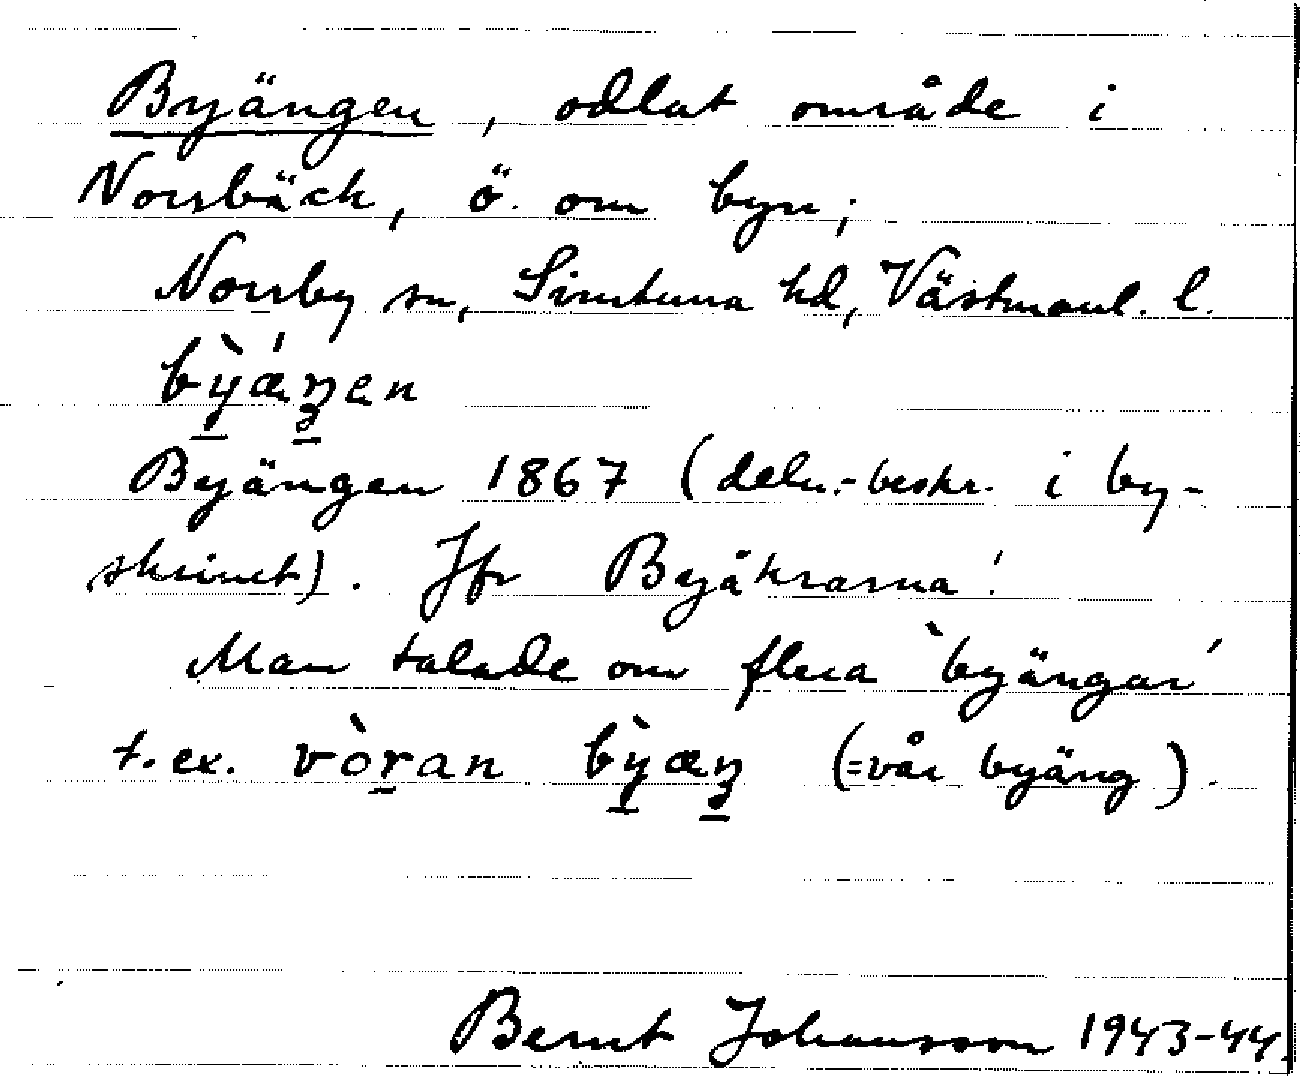 Byängen, odlat område i
Norrbäck, ö. om byn;
Norrby sn, Simtuna hd, Västmanl. l.
bỳǽŋen
Byängen 1867 (deln.-beskr. i by-
skrinet). Jfr Byåkrarna!
Man talade om flera `byängar´
t.ex. vòran bỳæŋ (=vår byäng).
Bernt Johansson 1943-44.